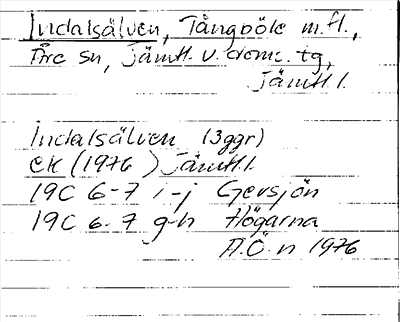 Indalsälven, Tångböle m.fl.,
Åre sn, Jämtl. v. domc. tg,
Jämtl. l.
Indalsälven (3ggr)
EK (1976) Jämtl. l.
19C 6-7 i-j Gevsjön
19C 6-7 g-h Högarna
A.Ö.n 1976